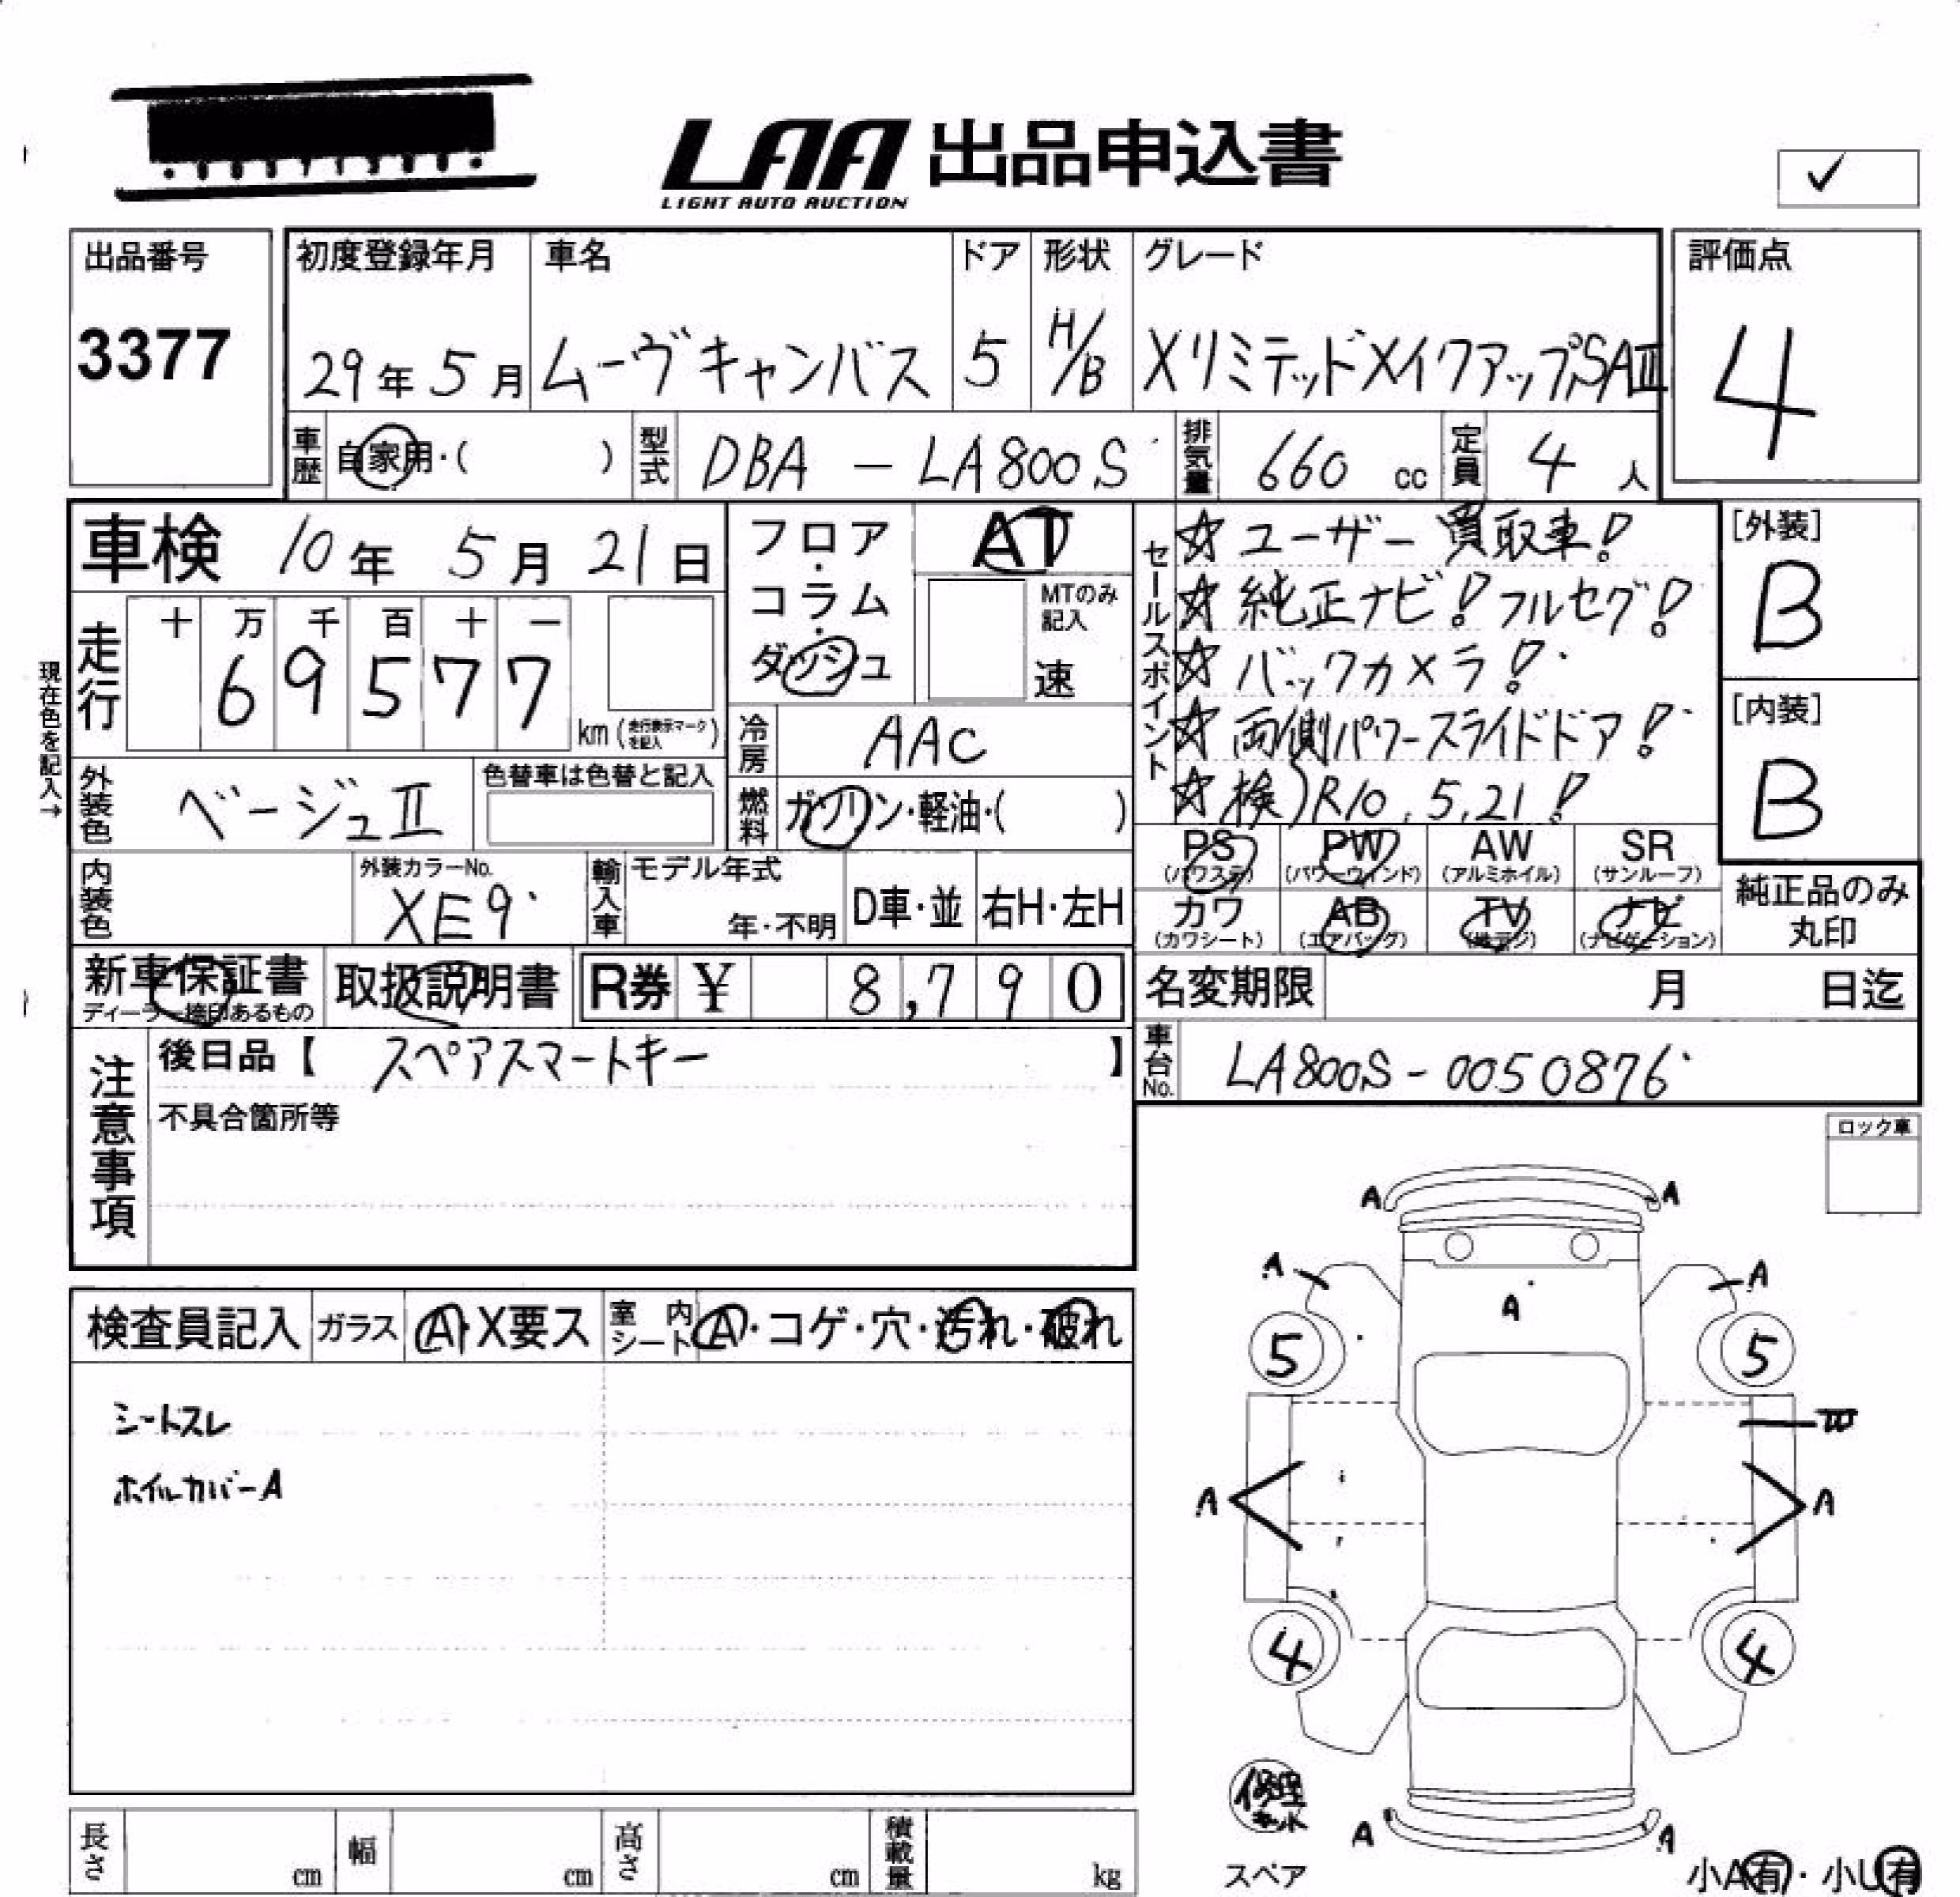 LAA 出品申込書
LIGHT AUTO AUCTION
✓
出品番号 初度登録年月 車名 ドア 形状 グレード 評価点
3377 29年5月 ムーヴキャンバス 5 H/B XリミテッドメイクアップSAⅢ 4
車歴 自家用・( ) 型式 DBA - LA800S 排気量 660 cc 定員 4 人
車検 10年 5月 21日
フロア・コラム・ダッシュ
AT
MTのみ記入
速
セールスポイント
☆ ユーザー買取車!
☆ 純正ナビ! フルセグ!
☆ バックカメラ!
☆ 両側パワースライドドア!
☆ 検)R10.5.21!
[外装]
B
[内装]
B
現在色を記入→
走行 十 万 千 百 十 一
69577 km (走行表示マークを記入)
冷房 AAC
外装色 ベージュⅡ 色替車は色替と記入
燃料 ガソリン・軽油・( )
内装色 外装カラーNo. XE9 輸入車 モデル年式 年・不明 D車・並 右H・左H
PS (パワステ) PW (パワーウィンド) AW (アルミホイル) SR (サンルーフ)
カワ (カワシート) AB (エアバッグ) TV (地デジ) ナビ (ナビゲーション)
純正品のみ丸印
新車保証書 取扱説明書 R券 ¥ 8,790 名変期限 月 日迄
ディーラー捺印あるもの
車台No. LA800S-0050876
注意事項
後日品【 スペアスマートキー 】
不具合箇所等
ロック車
検査員記入 ガラス A・X要ス 室内シート A・コゲ・穴・汚れ・破れ
シートスレ
ホイルカバーA
A A
A A
A
5 5
W
A A
4 4
修理キット
A A
スペア
小A有・小U有
長さ cm 幅 cm 高さ cm 積載量 kg